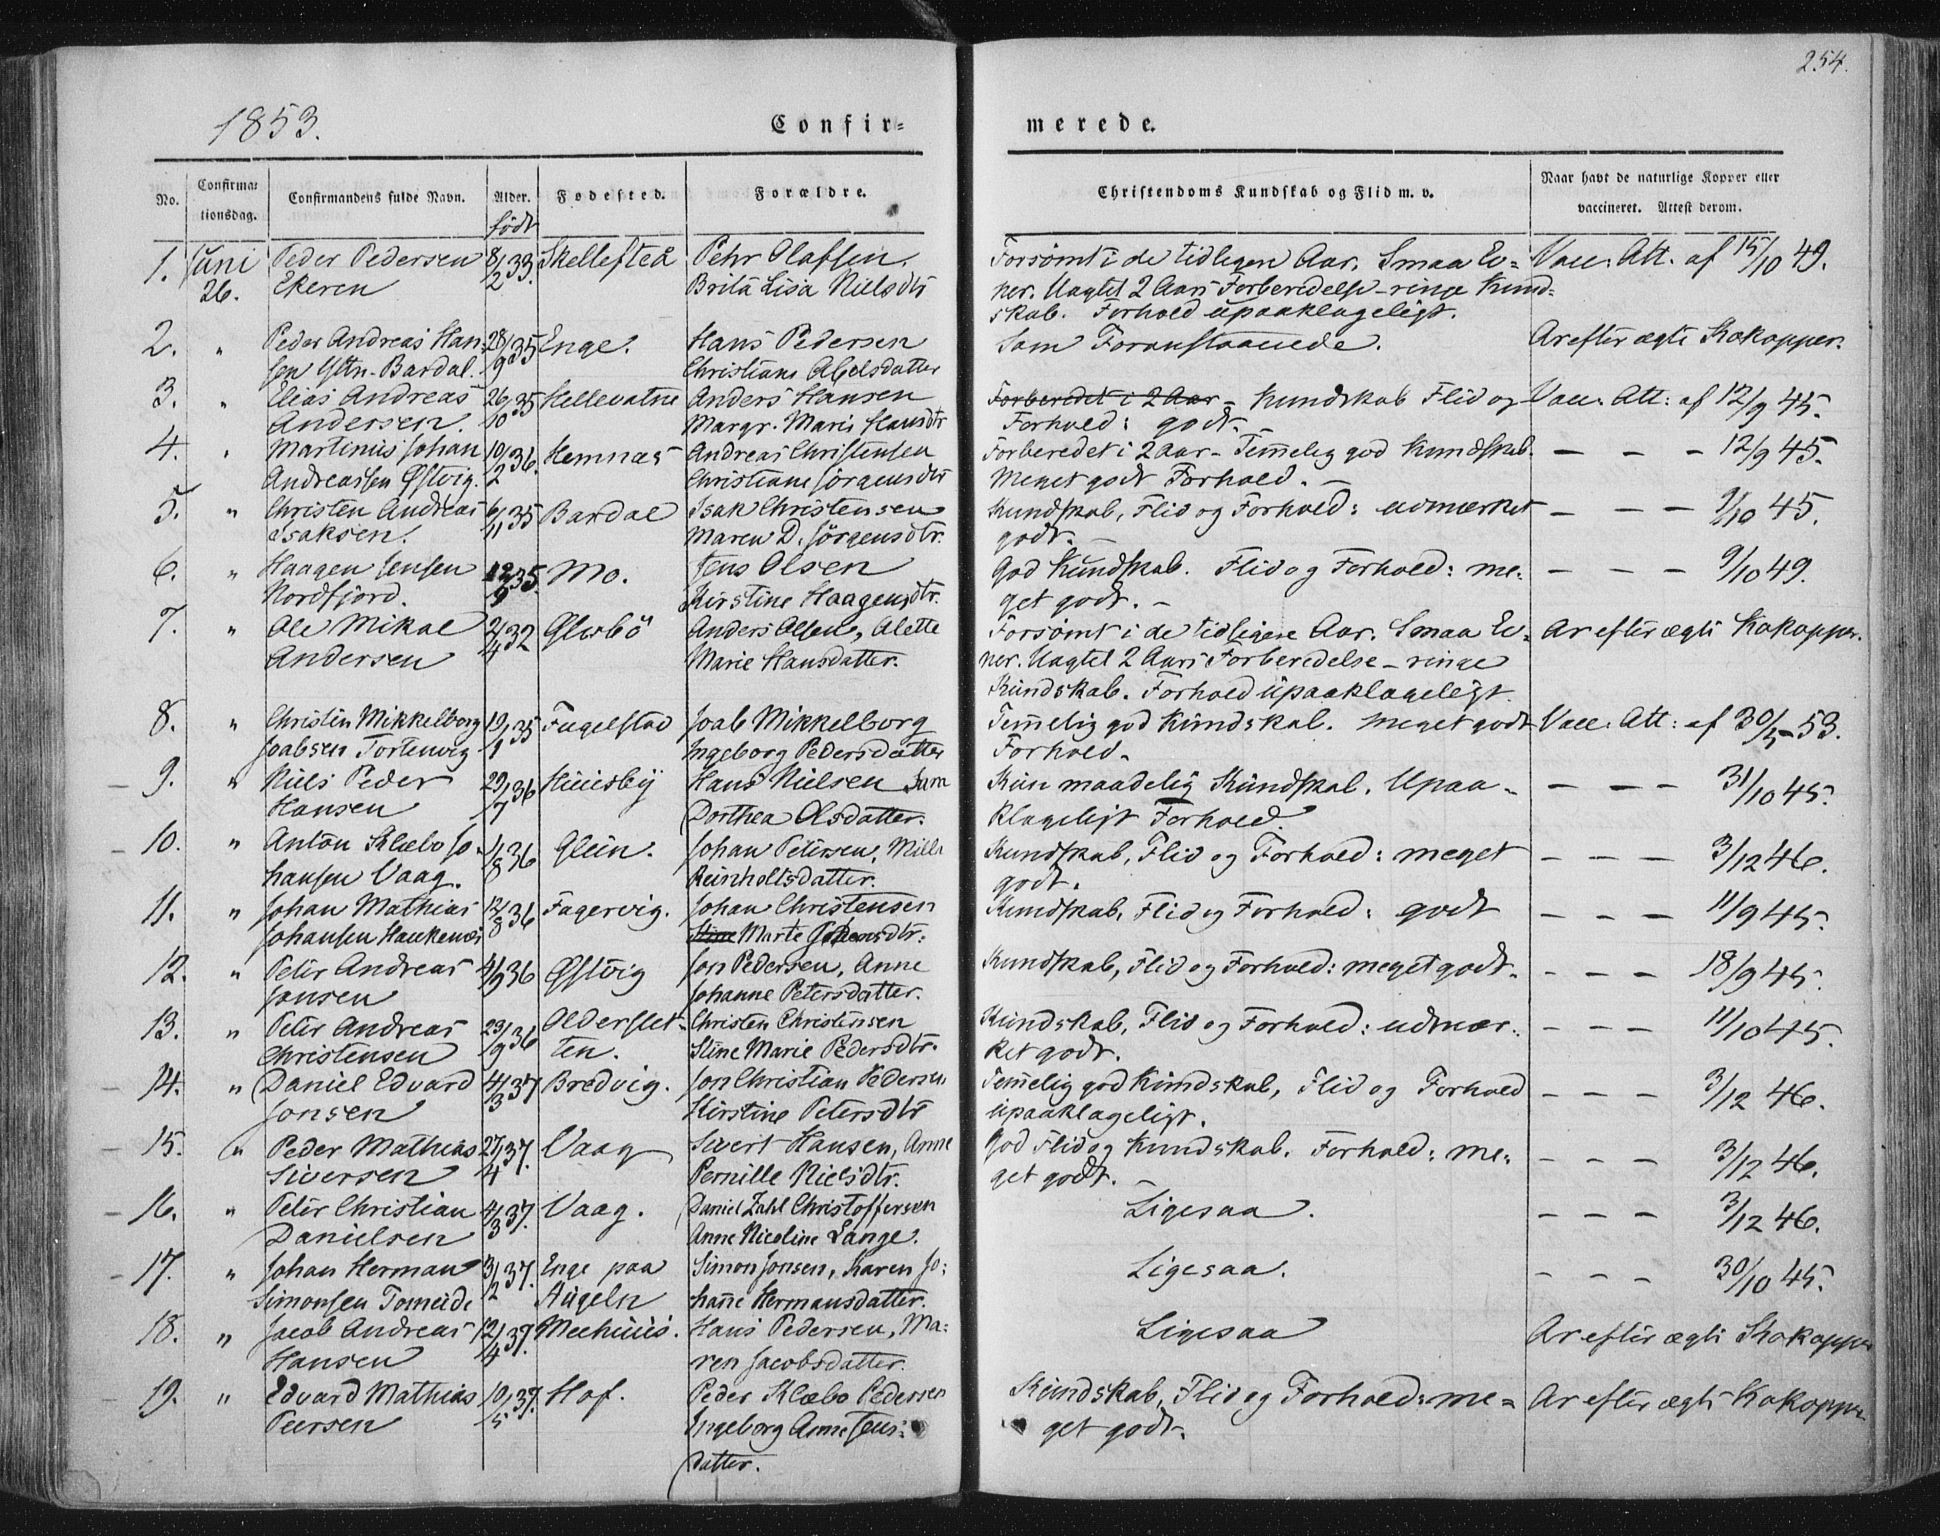 254.
1853.
Confir= merede.
No. Confirma= tionsdag. Confirmandens fulde Navn. Alder. Fødested. Forældre. Christendoms Kundskab og Flid m. v. Naar havt de naturlige Kopper eller vaccineret. Attest derom.
født
1. Juni Peder Pedersen 8/2 33. Skellefteå Pehr Olafsen. Forsømt i de tidligere Aar. Smaa Ev= Vacc. Att. af 15/10 49.
26. Ekeren Brita Lisa Nielsdtr ner. Uagtet 2 Aars Forberedelse - ringe Kund=
skab. Forhold upaaklageligt.
2. " Peder Andreas Han= 28/9 35 Enge. Hans Pedersen Som Foranstaaende. Ar efter ægte Kokopper.
sen Ytn. Bardal. Christiane Abelsdatter
3. " Elias Andreas 26/10 35 Hellevatne Anders Hansen Forberedet i 2 Aar - Kundskab Flid og Vacc. Att: af 12/9 45.
Andersen. Margr. Marie Hansdtr Forhold: godt.
4. " Martinus Johan 10/2 36. Hemnæs Andreas Christensen Forberedet i 2 Aar - Temmelig god Kundskab. — — — 12/9 45.
Andreassen Østvig. Christiane Jørgensdtr Meget godt Forhold. —
5. " Christen Andreas 6/11 35 Bardal Isak Christensen Kundskab, Flid og Forhold: udmærket — — — 9/10 45.
Isaksen. Maren D. Jörgensdtr. godt. —
6. " Haagen Jensen 35. Mo. Jens Olsen God Kundskab. Flid og Forhold: me= — — — 9/10 49.
Nordfjord. Kirstine Haagensdtr. get godt. —
7. " Ole Mikal 2/4 32 Anders Olsen, Alette Forsømt i de tidligere Aar. Smaa Ev= Ar efter ægte Kokopper.
Andersen Marie Hansdatter. ner. Uagtet 2 Aars Forberedelse - ringe
Kundskab. Forhold upaaklageligt.
8. " Christen Mikkelborg 19/1 35 Fagelstad Joab Mikkelborg Temmelig god Kundskab. Meget godt Vacc. Att: af 30/5 53.
Joabsen Tortenvig Ingeborg Pedersdatter Forhold.
9. " Niels Peder 29/7 36 Huusby Hans Nielsen Kun maadelig Kundskab. Upaa= — — — 31/10 45.
Hansen Dorthea Olsdatter. klageligt Forhold.
10. " Anton Klæbo Jo= 1/8 36 Glein. Johan Petersen, Kundskab, Flid og Forhold: meget — — — 3/12 46.
hansen Vaag. Reinholtsdatter. godt.
11. " Johan Mathias 12/8 36 Fagervig. Johan Christensen Kundskab, Flid og Forhold: godt — — — 11/9 45.
Johansen Haukenæs Stine Marte
12. " Peter Andreas 4/9 36 Østvig Jon Pedersen, Anne Kundskab, Flid og Forhold: meget godt. — — — 18/9 45.
Jonsen Johanne Petersdatter.
13. " Peter Andreas 23/9 36 Olderslet= Christen Christensen Kundskab, Flid og Forhold: udmær= — — — 11/10 45.
Christensen ten. Stine Marie Pedersdtr. ket godt.
14. " Daniel Edvard 4/3 37. Bredvig. Jon Christian Pedersen Temmelig god Kundskab, Flid og Forhold — — — 3/12 46.
Jonsen Kirstine Petersdtr upaaklageligt.
15. " Peder Mathias 27/4 37. Vaag Sivert Hansen, Anne God Flid og Kundskab. Forhold: me= — — — 3/12 46.
Siversen Pernille Nielsdtr. get godt.
16. " Peter Christian 4/3 37. Vaag. Daniel Zahl Christoffersen Ligesaa. — — — 3/12 46.
Danielsen Anne Nicoline Lange.
17. " Johan Herman 3/2 37. Enge paa Simon Jonsen, Karen Jo= Ligesaa. — — — 30/10 45.
Simonsen Tomeide hanne Hermansdatter.
18. " Jacob Andreas 12/4 37. Meehuus. Hans Pedersen, Ma= Ligesaa Ar efter ægte Kokopper
Hansen ren Jacobsdatter.
19. " Edvard Mathias 10/5 37. Hof. Peder Klæbo Pedersen Kundskab, Flid og Forhold: me= Ar efter ægte Kokopper
Peersen Ingeborg Anne Jens= get godt.
datter.